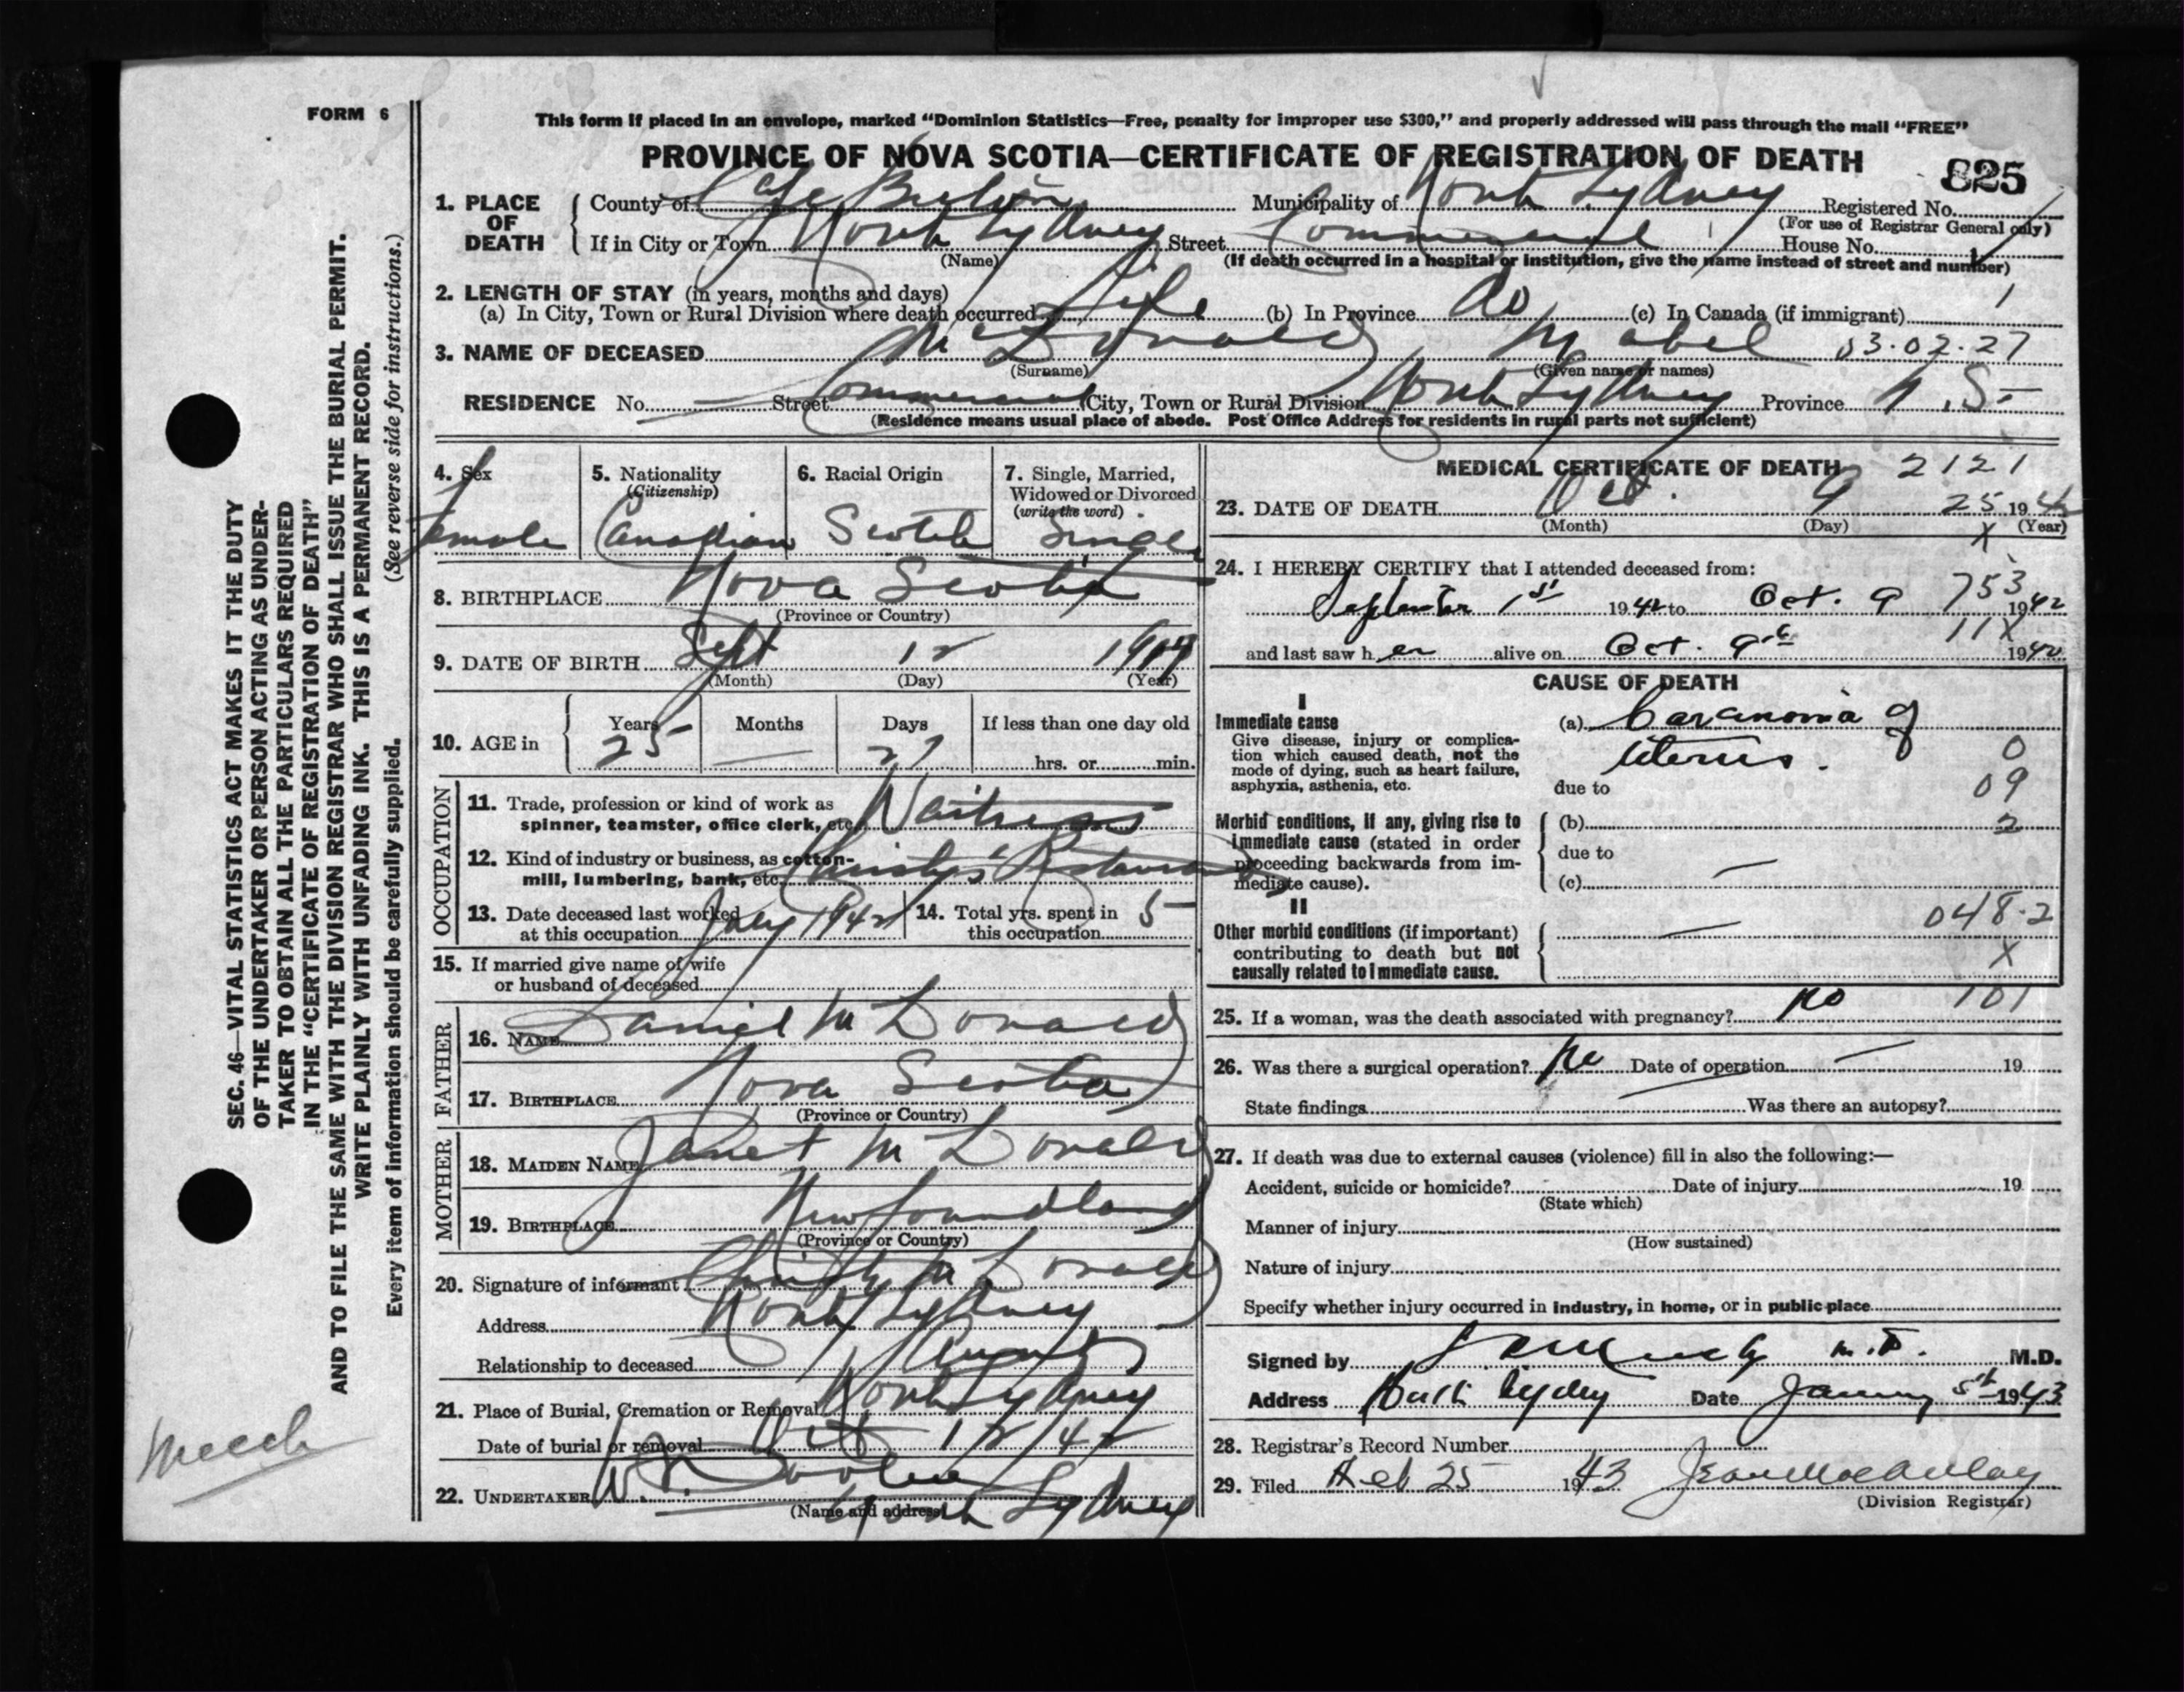 FORM 6
This form if placed in an envelope, marked "Dominion Statistics—Free, penalty for improper use $300," and properly addressed will pass through the mail "FREE"
PROVINCE OF NOVA SCOTIA—CERTIFICATE OF REGISTRATION OF DEATH 825
1. PLACE OF DEATH
County of Cape Breton Municipality of North Sydney Registered No.
(For use of Registrar General only)
If in City or Town North Sydney Street Commercial House No.
(Name) (If death occurred in a hospital or institution, give the name instead of street and number)
2. LENGTH OF STAY (in years, months and days)
(a) In City, Town or Rural Division where death occurred Life (b) In Province do (c) In Canada (if immigrant) 1
3. NAME OF DECEASED McDonald, Mabel 03.02.27
(Surname) (Given name or names)
RESIDENCE No. — Street Commercial City, Town or Rural Division North Sydney Province N.S.
(Residence means usual place of abode. Post Office Address for residents in rural parts not sufficient)
4. Sex female
5. Nationality (Citizenship) Canadian
6. Racial Origin Scotch
7. Single, Married, Widowed or Divorced (write the word) Single
8. BIRTHPLACE Nova Scotia
(Province or Country)
9. DATE OF BIRTH Sept 12
(Month) (Day) (Year)
10. AGE in Years 25 Months — Days 27 If less than one day old
hrs. or min.
OCCUPATION
11. Trade, profession or kind of work as spinner, teamster, office clerk, etc. Waitress
12. Kind of industry or business, as cotton-mill, lumbering, bank, etc. Restaurant
13. Date deceased last worked at this occupation July 1942
14. Total yrs. spent in this occupation 5
15. If married give name of wife or husband of deceased
FATHER
16. NAME Daniel McDonald
17. BIRTHPLACE Nova Scotia
(Province or Country)
MOTHER
18. MAIDEN NAME Janet McDonald
19. BIRTHPLACE Newfoundland
(Province or Country)
20. Signature of informant McDonald
Address North Sydney
Relationship to deceased
21. Place of Burial, Cremation or Removal North Sydney
Date of burial or removal Oct 12/42
22. UNDERTAKER North Sydney
(Name and address)
MEDICAL CERTIFICATE OF DEATH 2121
23. DATE OF DEATH Oct. 9 25 1942
(Month) (Day) (Year)
X
24. I HEREBY CERTIFY that I attended deceased from:
September 1st 1942 to Oct. 9 753 1942
11X
and last saw her alive on Oct. 9th 1942
CAUSE OF DEATH
I
Immediate cause
Give disease, injury or complication which caused death, not the mode of dying, such as heart failure, asphyxia, asthenia, etc.
(a) Carcinoma of
uterus. 0
due to 09
Morbid conditions, if any, giving rise to immediate cause (stated in order proceeding backwards from immediate cause).
(b) 2
due to
(c) —
II
Other morbid conditions (if important) contributing to death but not causally related to immediate cause.
— 048.2
X
25. If a woman, was the death associated with pregnancy? no 101
26. Was there a surgical operation? no Date of operation — 19
State findings Was there an autopsy?
27. If death was due to external causes (violence) fill in also the following:—
Accident, suicide or homicide? Date of injury 19
(State which)
Manner of injury
(How sustained)
Nature of injury
Specify whether injury occurred in industry, in home, or in public place
Signed by M.D. M.D.
Address North Sydney Date January 5th 1943
28. Registrar's Record Number
29. Filed Feb 25 1943 Jean MacAulay
(Division Registrar)
SEC. 46—VITAL STATISTICS ACT MAKES IT THE DUTY
OF THE UNDERTAKER OR PERSON ACTING AS UNDER-
TAKER TO OBTAIN ALL THE PARTICULARS REQUIRED
IN THE "CERTIFICATE OF REGISTRATION OF DEATH"
AND TO FILE THE SAME WITH THE DIVISION REGISTRAR WHO SHALL ISSUE THE BURIAL PERMIT.
WRITE PLAINLY WITH UNFADING INK. THIS IS A PERMANENT RECORD.
Every item of information should be carefully supplied. (See reverse side for instructions.)